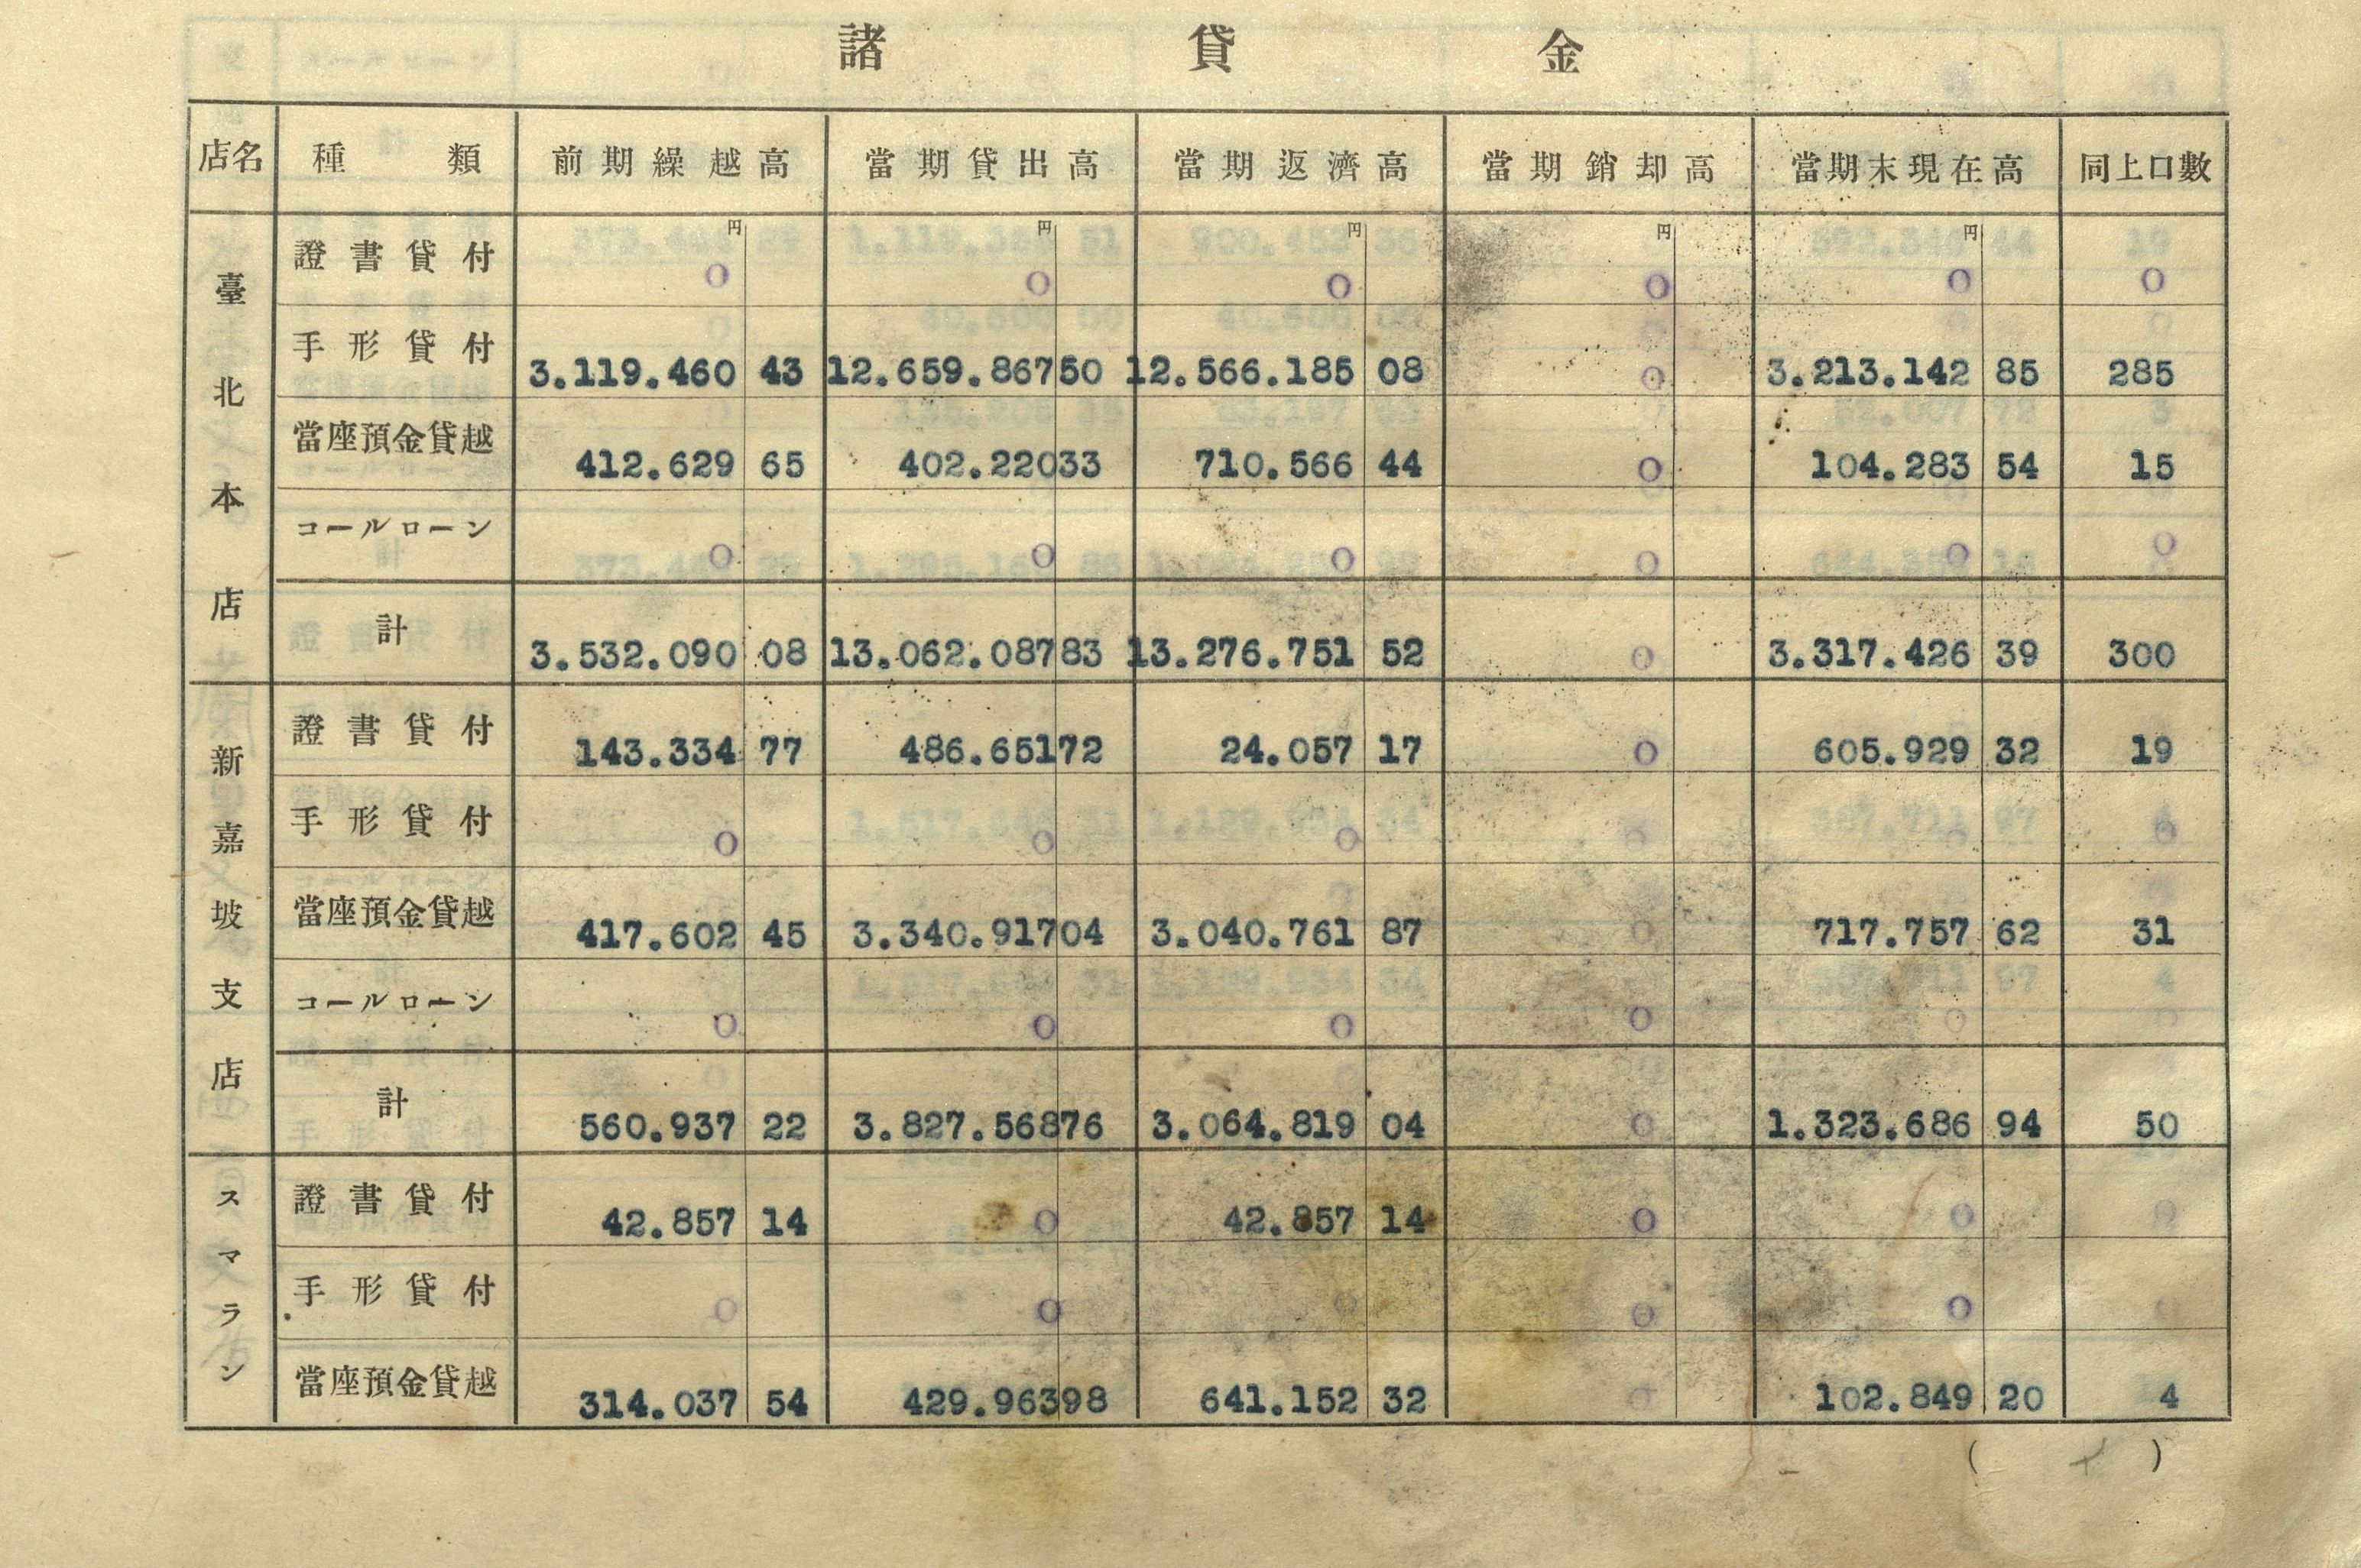 諸貸金
店名 種類 前期繰越高 當期貸出高 當期返濟高 當期銷却高 當期末現在高 同上口數
円 円 円 円 円
臺北本店
證書貸付 0 0 0 0 0 0
手形貸付 3.119.460 43 12.659.867 50 12.566.185 08 0 3.213.142 85 285
當座預金貸越 412.629 65 402.220 33 710.566 44 0 104.283 54 15
コールローン 0 0 0 0 0 0
計 3.532.090 08 13.062.087 83 13.276.751 52 0 3.317.426 39 300
新嘉坡支店
證書貸付 143.334 77 486.651 72 24.057 17 0 605.929 32 19
手形貸付 0 0 0 0 0 0
當座預金貸越 417.602 45 3.340.917 04 3.040.761 87 0 717.757 62 31
コールローン 0 0 0 0 0 0
計 560.937 22 3.827.568 76 3.064.819 04 0 1.323.686 94 50
スマラン
證書貸付 42.857 14 0 42.857 14 0 0 0
手形貸付 0 0 0 0 0 0
當座預金貸越 314.037 54 429.963 98 641.152 32 0 102.849 20 4
( )